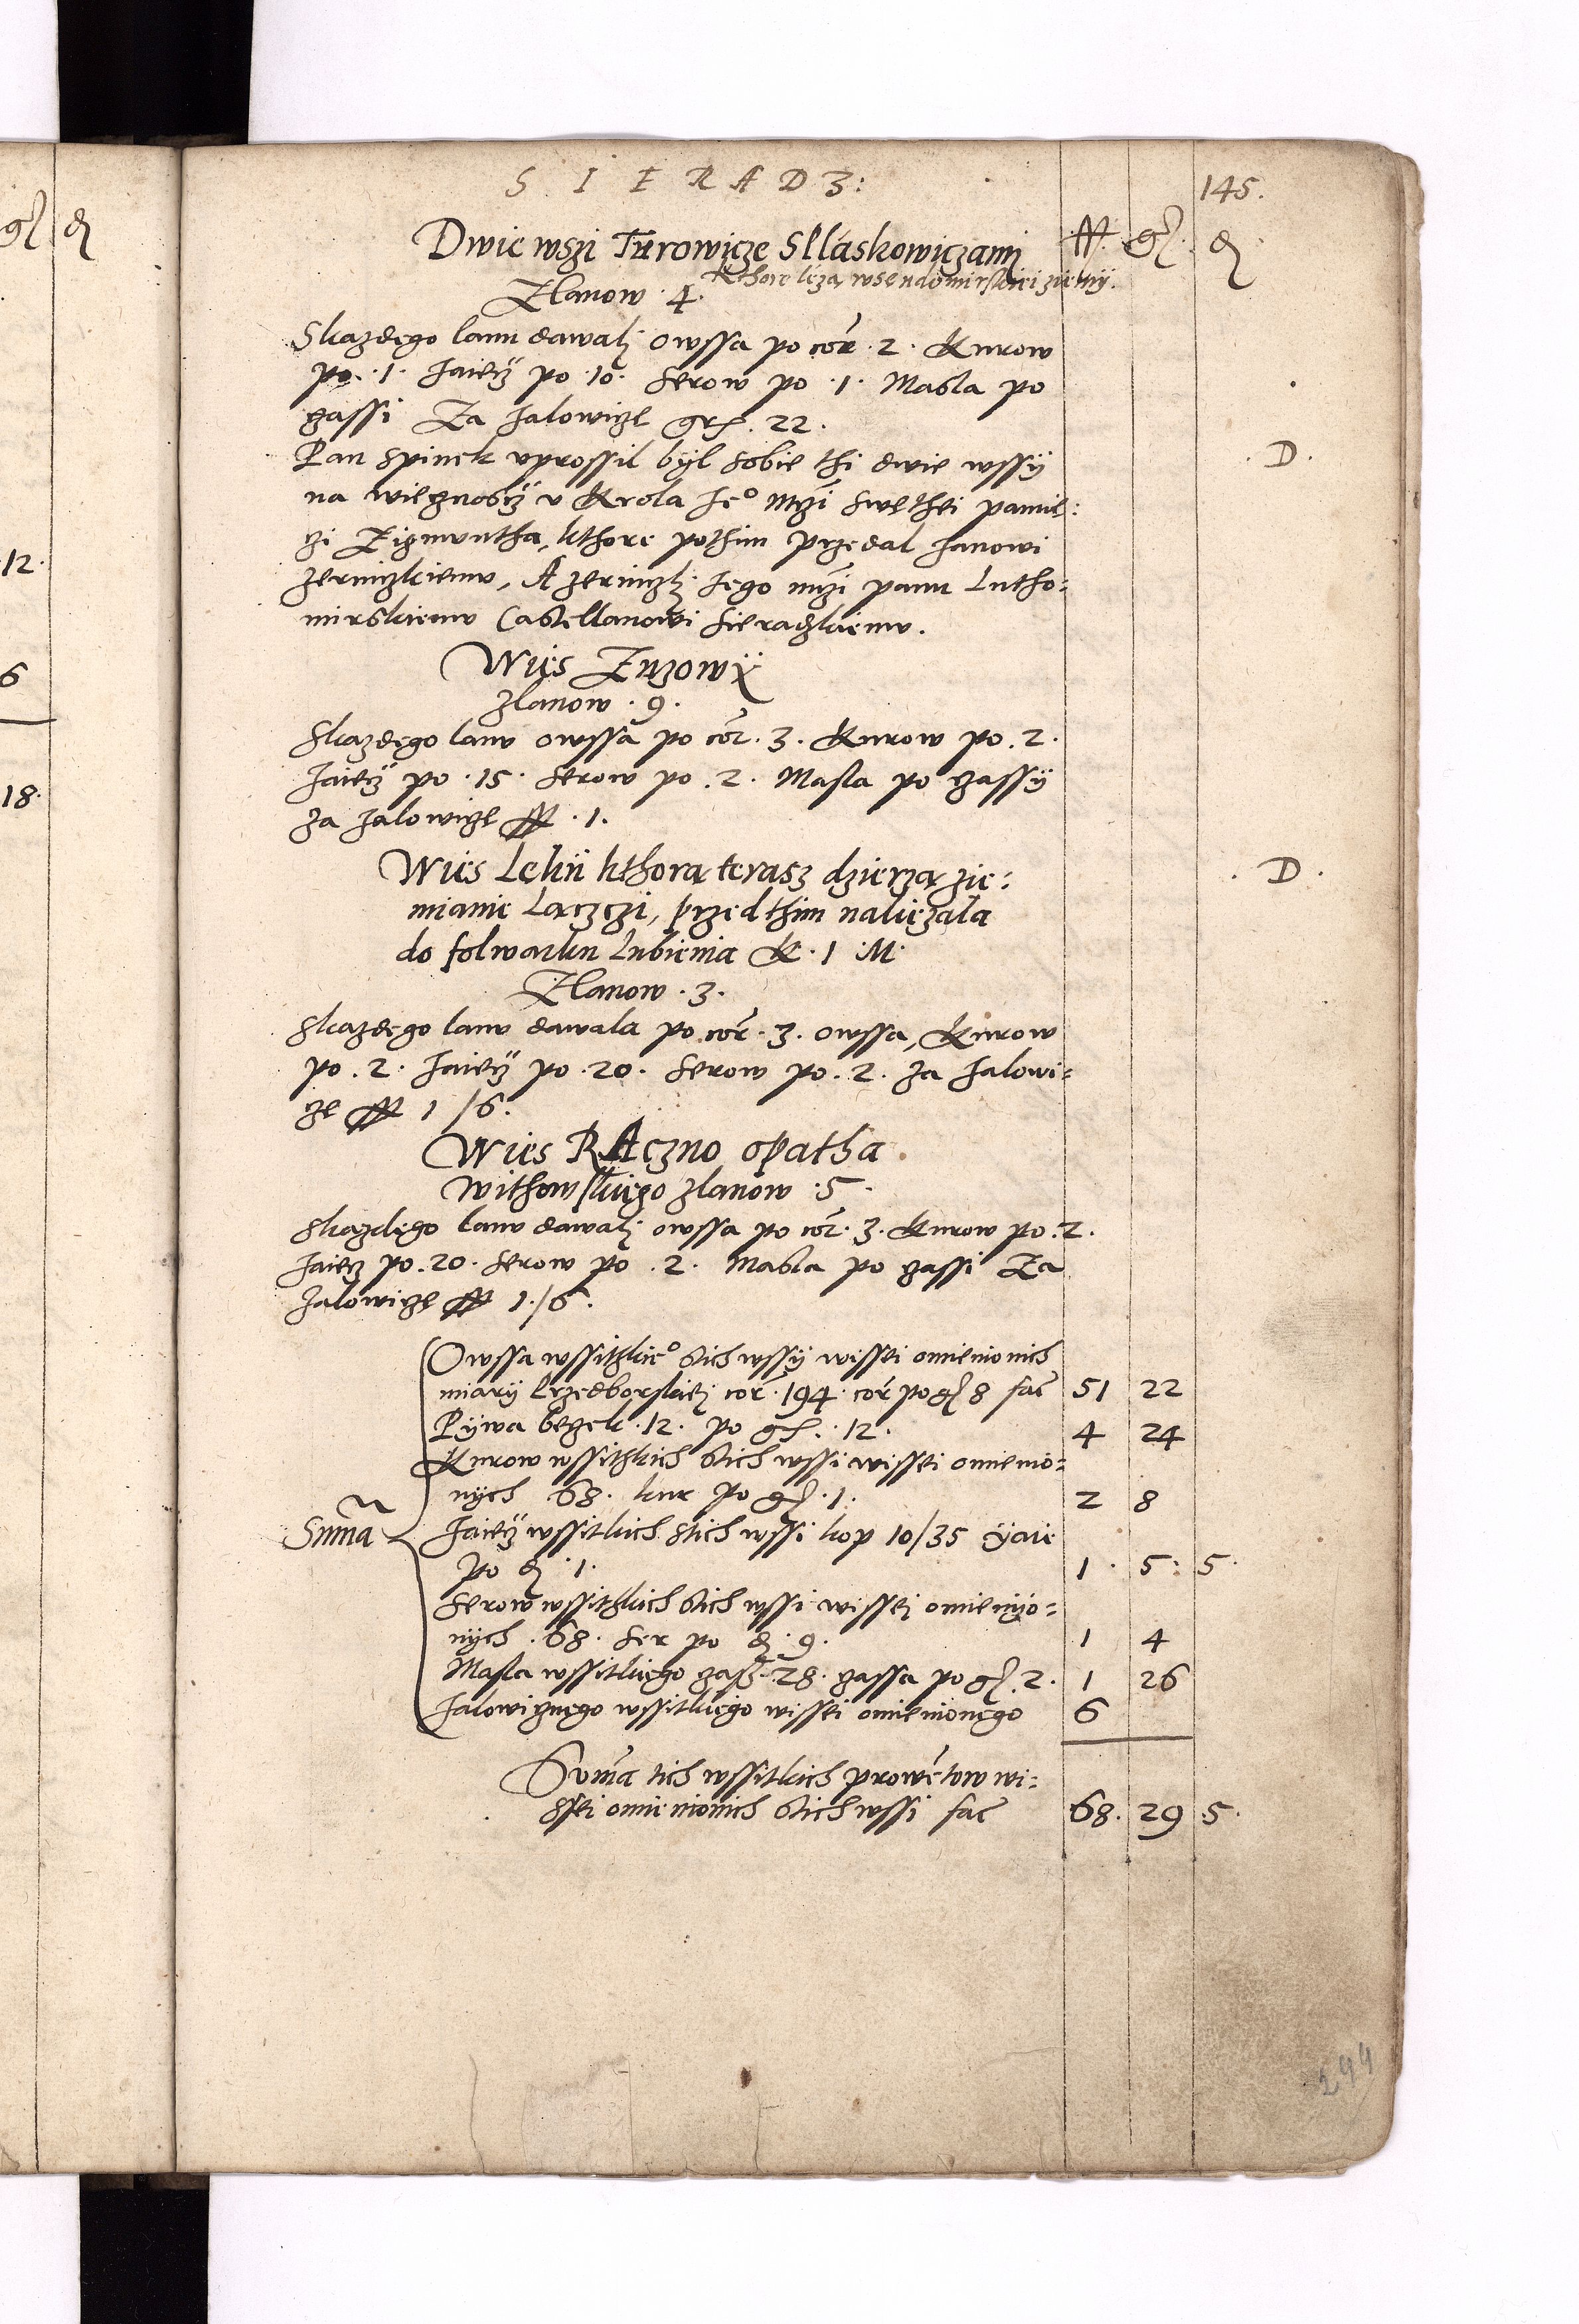 S I E R A D Z:
145.
Dwie wszi Turowicze Sllaskowiczami ff. gl. d
kthore leza wsendomirskiei ziemij.
Zlanow . 4.
Skazdego lanu dawalj owssa po cor . 2 . Kurow
po . 1 . Jaiecz po . 10 . Serow po . 1 . Masla po
gassi Za Jalowicze grs . 22 .
Pan Spinek vprossil byl sobie thi dwie wssÿ
na wiecznoscz v Krola Je° mczi swethei pamie:
czi Zigmuntha, kthore pothim przedal Janowi
. D .
, A Jego mczi panu Lutho:
mirskiemu Castellanowi Sieradzkiemu.
Wies Zuzowÿ
zlanow . 9 .
Skazdego lanu owssa po cor . 3 . Kurow po . 2 .
Jaiecz po . 15 . Serow po . 2 . Masla po gassÿ
za Jalowicze ff . 1 .
Wies Lekii kthora terasz dzierza zie:
mianie Laczczi, przedthim naliezala
do folwarku Lubienia K . 1 M .
. D .
Zlanow . 3 .
Skazdego lanu dawala po cor . 3 . owssa, Kurow
po . 2 . Jaiecz po . 20 . Serow po . 2 . za Jalowi:
cze ff 1 / 6 .
Wies RAczno opatha
withowskiego zlanow . 5 .
Skazdego lanu dawalj owssa po cor . 3 . Kurow po . 2 .
Jaiecz po . 20 . Serow po . 2 . Masla po gassi Za
Jalowicze ff 1 . / 6 .
Owssa wssitzkie° stich wssÿ wissei omienionich
miarÿ przedborskiej cor . 194 . cor po gl 8 fac 51 22
Pÿwa beczek . 12 . po gr . 12 . 4 24
Kurow wssitzkich stich wssi wissei omienio:
nÿch 68 . kur po gl . 1 . 2 8
Suma Jaiecz wssitkich stich wssi kop 10/35 ÿaie
po d . 1 . 1 . 5 : 5 .
Serow wssitzkich stich wssi wissej omienÿo:
nÿch . 68 . ser po d . 9 . 1 4
Masla wssitkiego gass . 28 . gassa po gl . 2 . 1 26
Jalowicznego wssitkiego wissei omienionego 6
Suma tich wssitkich prowetow wi:
ssei omienionich stich wssi fac 68 . 29 . 5 .
244
12 .
6
18 .
gl d